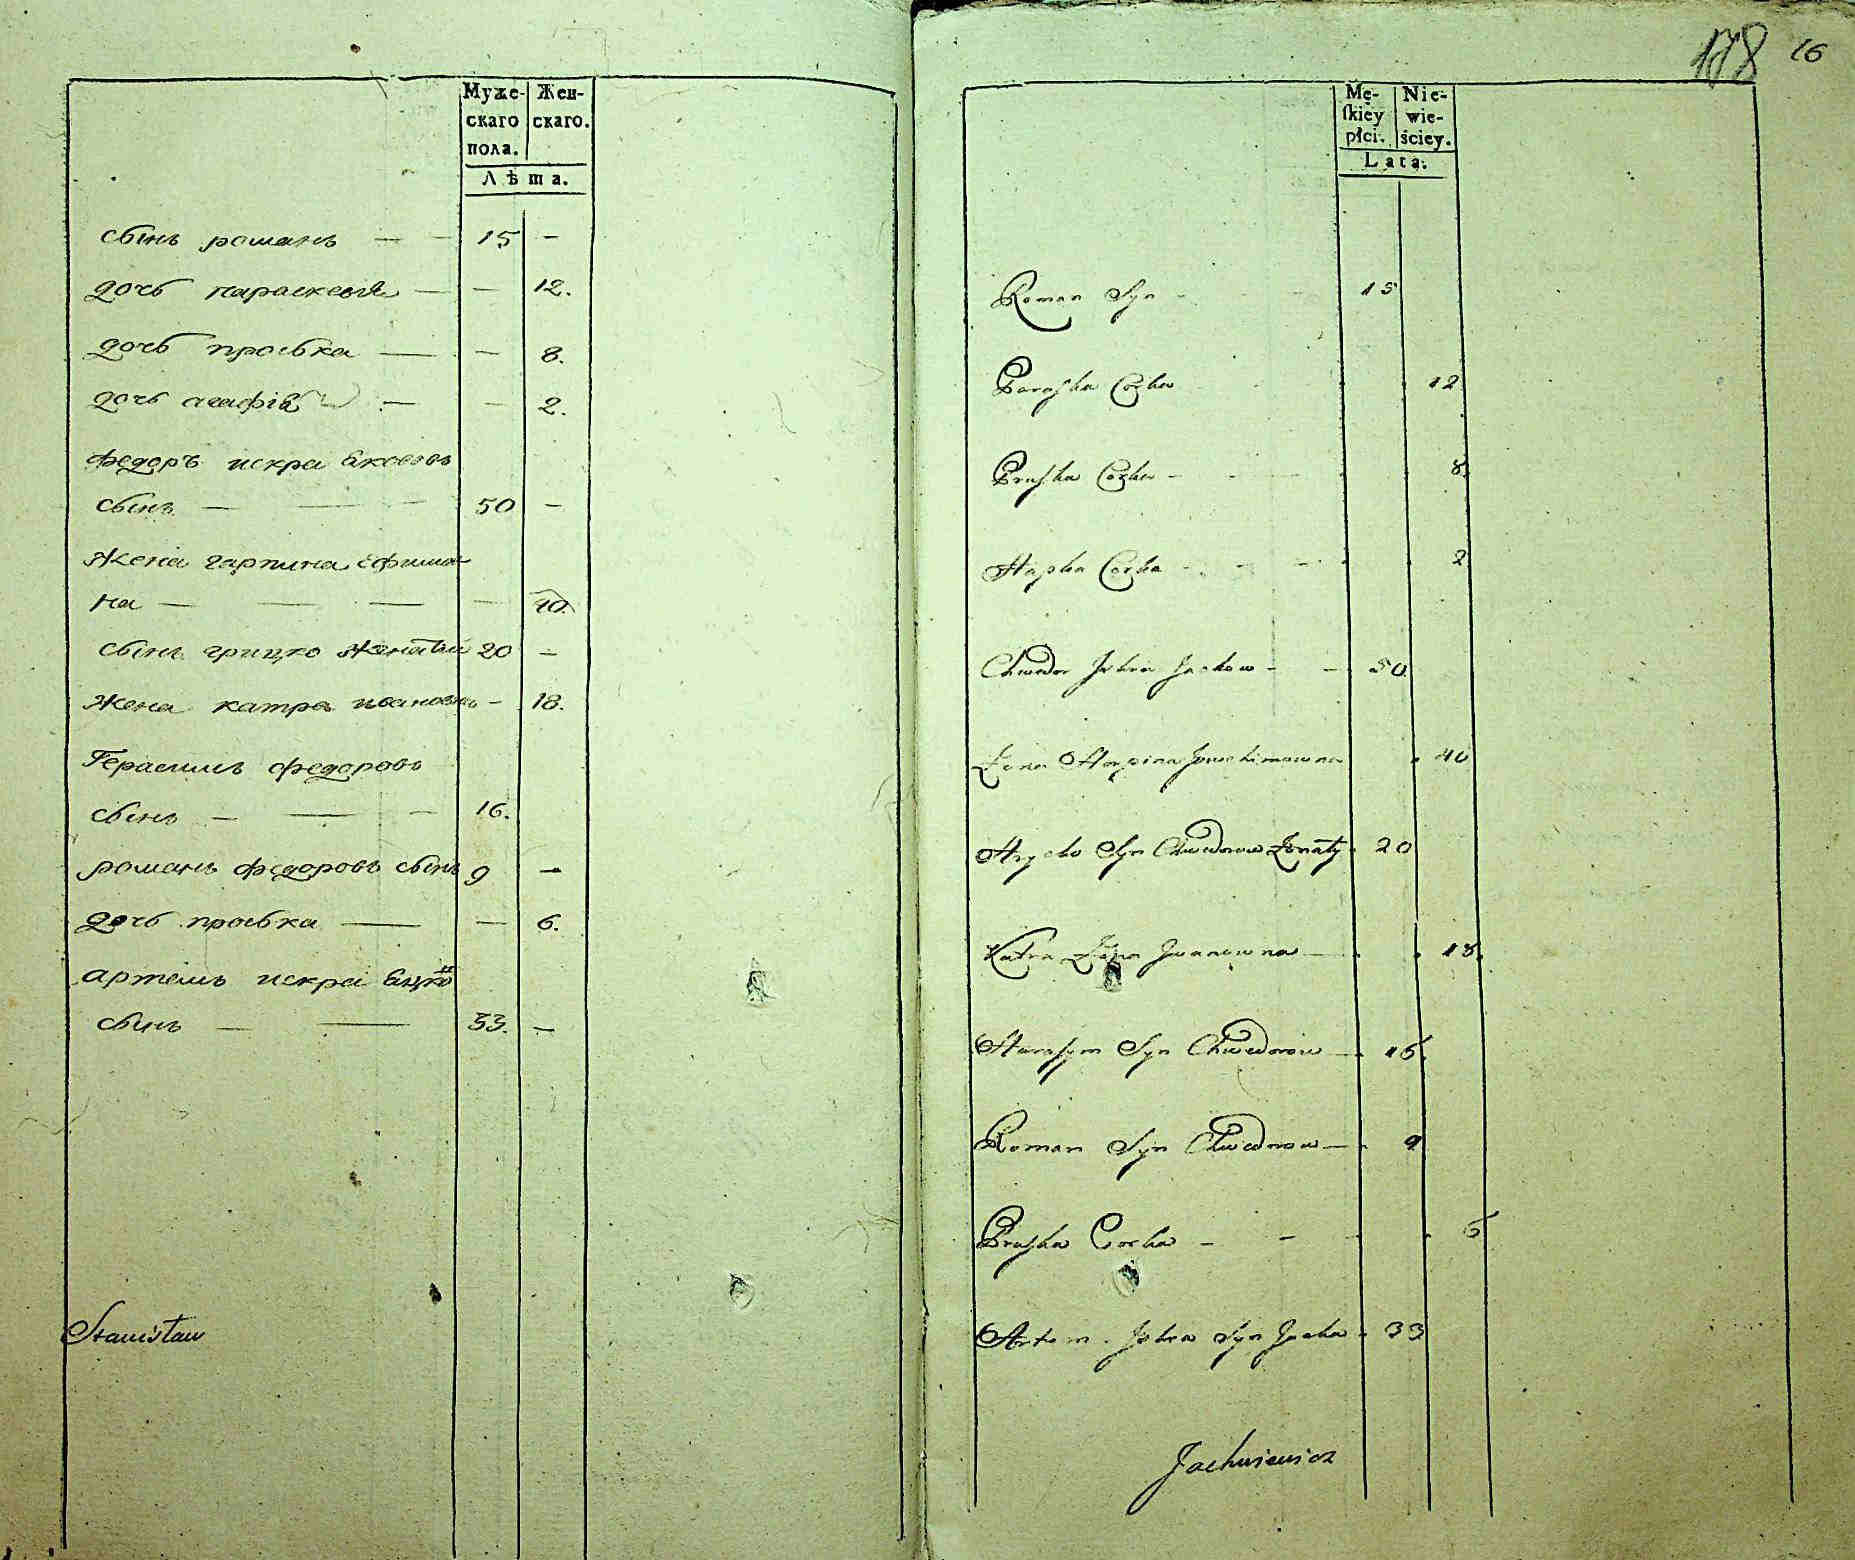 Муже-
скаго
пола.
Жен-
скаго.
Лѣта.
сынъ романъ — — 15 —
дочь параскевія — — 12.
дочь проська — — 8.
дочь агафія — — 2.
Федоръ искра якововъ
сынъ — — — 50 —
жена гарпина ефимов
на — — — — 40.
сынъ грицко женатый 20 —
жена катра ивановна — 18.
Герасимъ федоровъ
сынъ — — — 16.
романъ федоровъ сынъ 9 —
дочь проська — — 6.
артемъ искра яцковъ
сынъ — — 33. —
Stanisław
178 16
Mę-
ſkiéy
płci.
Nie-
wie-
ściey.
Lata.
Roman Syn - - - 15
Paraſka Corka 12
Pruſka Corka - - - 8.
Hapka Corka - - - 2
Chwedor Jskra Jackow - - 50.
Żona Harpina Jowchimowna 40
Hrycko Syn Chwedorow Żonaty 20
Katra Żona Jwanowna — 18.
Haraſym Syn Chwedorow — 16.
Roman Syn Chwedorow — 9
Pruſka Corka - - - 6
Artem Jskra Syn Jacka 33
Jachniewicz